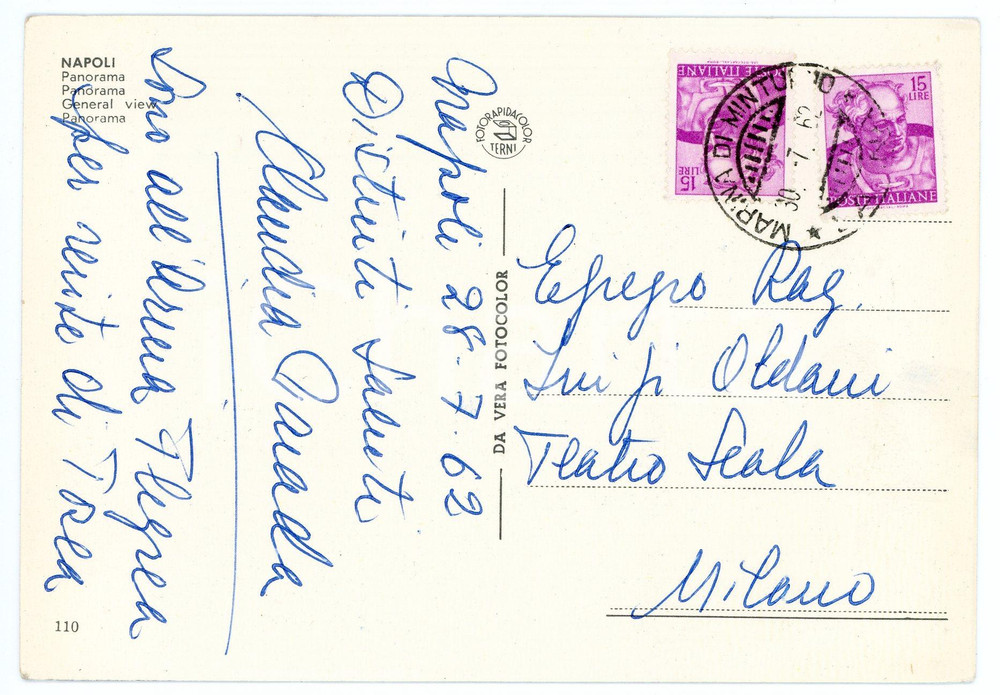 NAPOLI
Panorama
Panorama
General view
Panorama
Napoli 28-7-62
Distinti saluti
Claudia Parada
Sono all'Arena Flegrea
per recite di Tosca
110
FOTORAPIDACOLOR
TERNI
DA VERA FOTOCOLOR
POSTE ITALIANE
15
LIRE
15
LIRE
POSTE ITALIANE
MARINA DI MINTURNO
30.-7.62
Egregio Rag.
Luigi Oldani
Teatro Scala
Milano